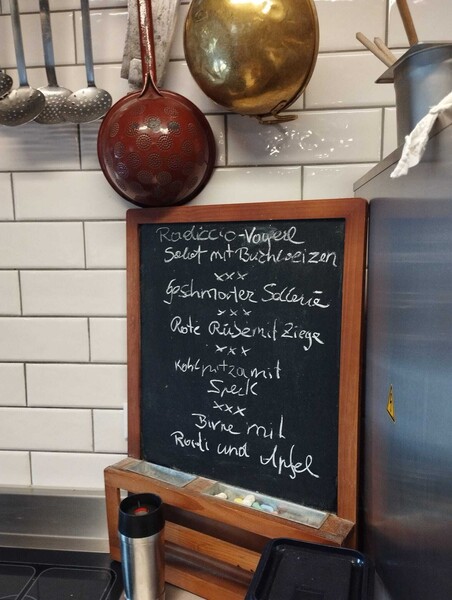 Radiccio-Vogerl
Salat mit Buchweizen
xxx
Geschmorter Sellerie
xxx
Rote Rübe mit Ziege
xxx
Kohlpizza mit
Speck
xxx
Birne mit
Radi und Apfel